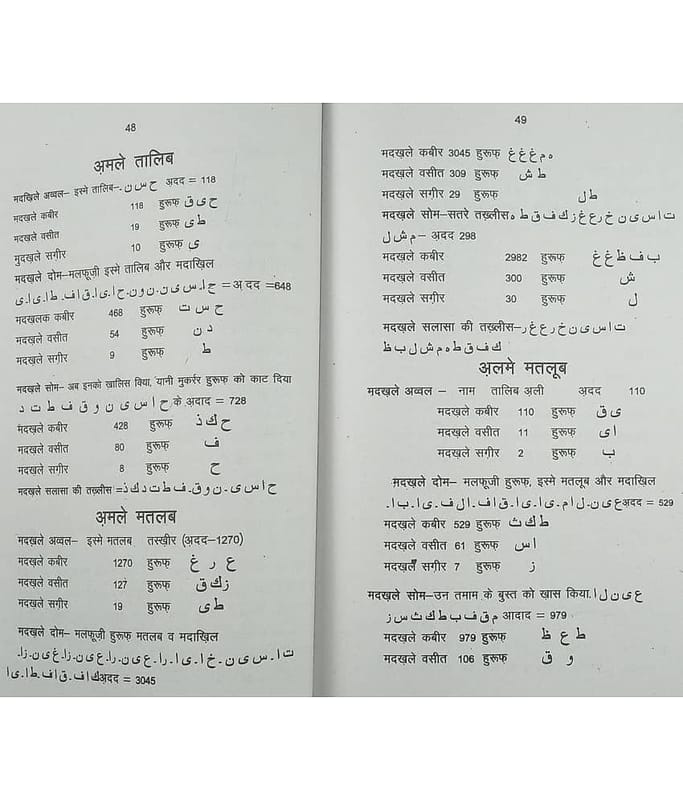 48
अ़मले तालिब
मदख़िले अव्वल– इस्मे तालिब-. ح س ن अ़दद = 118
मदख़ले कबीर 118 हुरूफ़ ح ی ق
मदख़ले वसीत 19 हुरूफ़ ط ی
मुदख़ले सग़ीर 10 हुरूफ़ ی
मदख़ले दोम–मलफूज़ी इस्मे तालिब और मदाख़िल
ح ا. س ی ن. ن و ن. ح ا. ی ا. ق ا ف. ط ا. ی ا. ی = अ़दद =648
मदख़लक कबीर 468 हुरूफ़ ح س ت
मदख़ले वसीत 54 हुरूफ़ د ن
मदख़ले सग़ीर 9 हुरूफ़ ط
मदख़ले सोम– अब इनको ख़ालिस किया, यानी मुकर्रर हुरूफ़ को काट दिया
ح ا س ی ن و ق ف ط ت د के अ़दाद = 728
मदख़ले कबीर 428 हुरूफ़ ح ك ذ
मदख़ले वसीत 80 हुरूफ़ ف
मदख़ले सग़ीर 8 हुरूफ़ ح
मदख़ले सलासा की तख़्लीस = ح ا س ی. ن و ق. ف ط ت د ك ذ
अ़मले मतलब
मदख़ले अव्वल– इस्मे मतलब तस्ख़ीर (अ़दद-1270)
मदख़ले कबीर 1270 हुरूफ़ ع ر غ
मदख़ले वसीत 127 हुरूफ़ ز ك ق
मदख़ले सग़ीर 19 हुरूफ़ ط ی
मदख़ले दोम– मलफूज़ी हुरूफ़ मतलब व मदाख़िल
ت ا. س ی ن. خ ا. ی ا. ر ا. ع ی ن. ر ا. غ ی ن. ز ا. غ ی ن. ز ا.
ك ا ف. ق ا ف. ط ا. ی ا अ़दद = 3045
49
मदख़ले कबीर 3045 हुरूफ़ ه م غ غ غ
मदख़ले वसीत 309 हुरूफ़ ط ش
मदख़ले सग़ीर 29 हुरूफ़ ط ل
मदख़ले सोम–सतरे तख़्लीस ت ا س ی ن خ ر ع غ ز ك ف ق ط ه
م ش ل – अ़दद 298
मदख़ले कबीर 2982 हुरूफ़ ب ف ظ غ غ
मदख़ले वसीत 300 हुरूफ़ ش
मदख़ले सग़ीर 30 हुरूफ़ ل
मदख़ले सलासा की तख़्लीस– ت ا س ی ن خ ر ع غ ر
ك ف ق ط ه م ش ل ب ظ
अ़लमे मतलूब
मदख़ले अव्वल – नाम तालिब अ़ली अ़दद 110
मदख़ले कबीर 110 हुरूफ़ ی ق
मदख़ले वसीत 11 हुरूफ़ ا ی
मदख़ले सग़ीर 2 हुरूफ़ ب
मदख़ले दोम– मलफूज़ी हुरूफ़, इस्मे मतलूब और मदाख़िल
ع ی ن. ل ا م. ی ا. ی ا. ق ا ف. ا ل ف. ی ا. ب ا. अ़दद = 529
मदख़ले कबीर 529 हुरूफ़ ط ك ث
मदख़ले वसीत 61 हुरूफ़ ا س
मदख़ले सग़ीर 7 हुरूफ़ ز
मदख़ले सोम–उन तमाम के बुस्त को ख़ास किया. ع ی ن ل ا
م ق ف ب ط ك ث س ز आदाद = 979
मदख़ले कबीर 979 हुरूफ़ ط ع ظ
मदख़ले वसीत 106 हुरूफ़ و ق